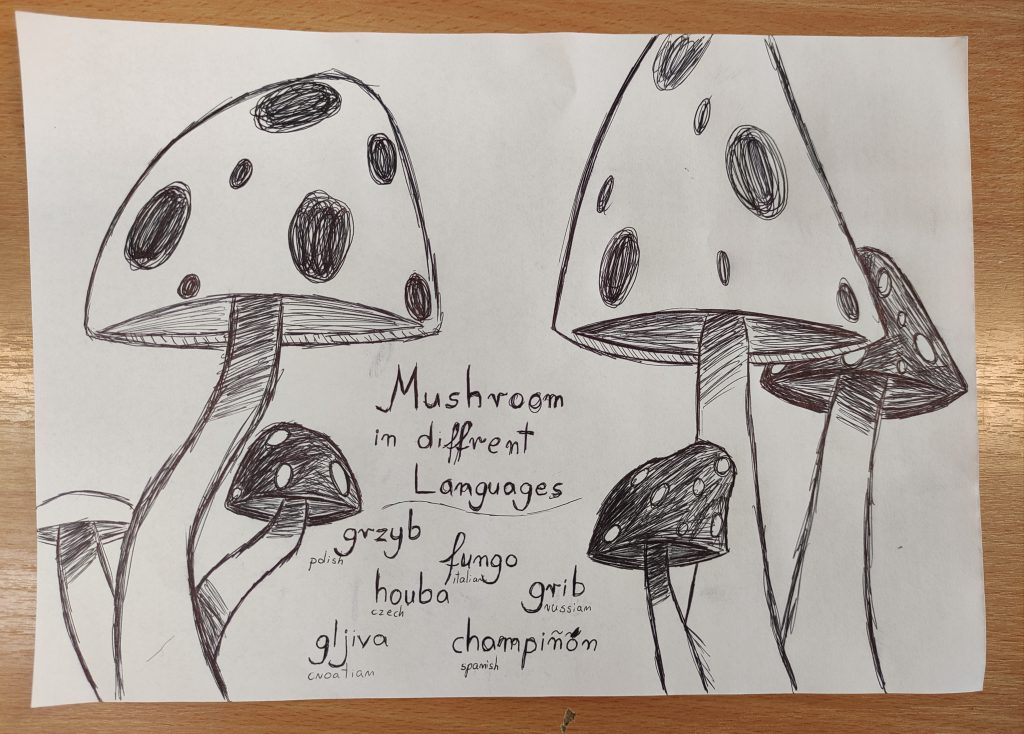 Mushroom
in diffrent
Languages
grzyb
polish
fungo
italian
houba
czech
grib
russian
gljiva
croatian
champiñón
spanish